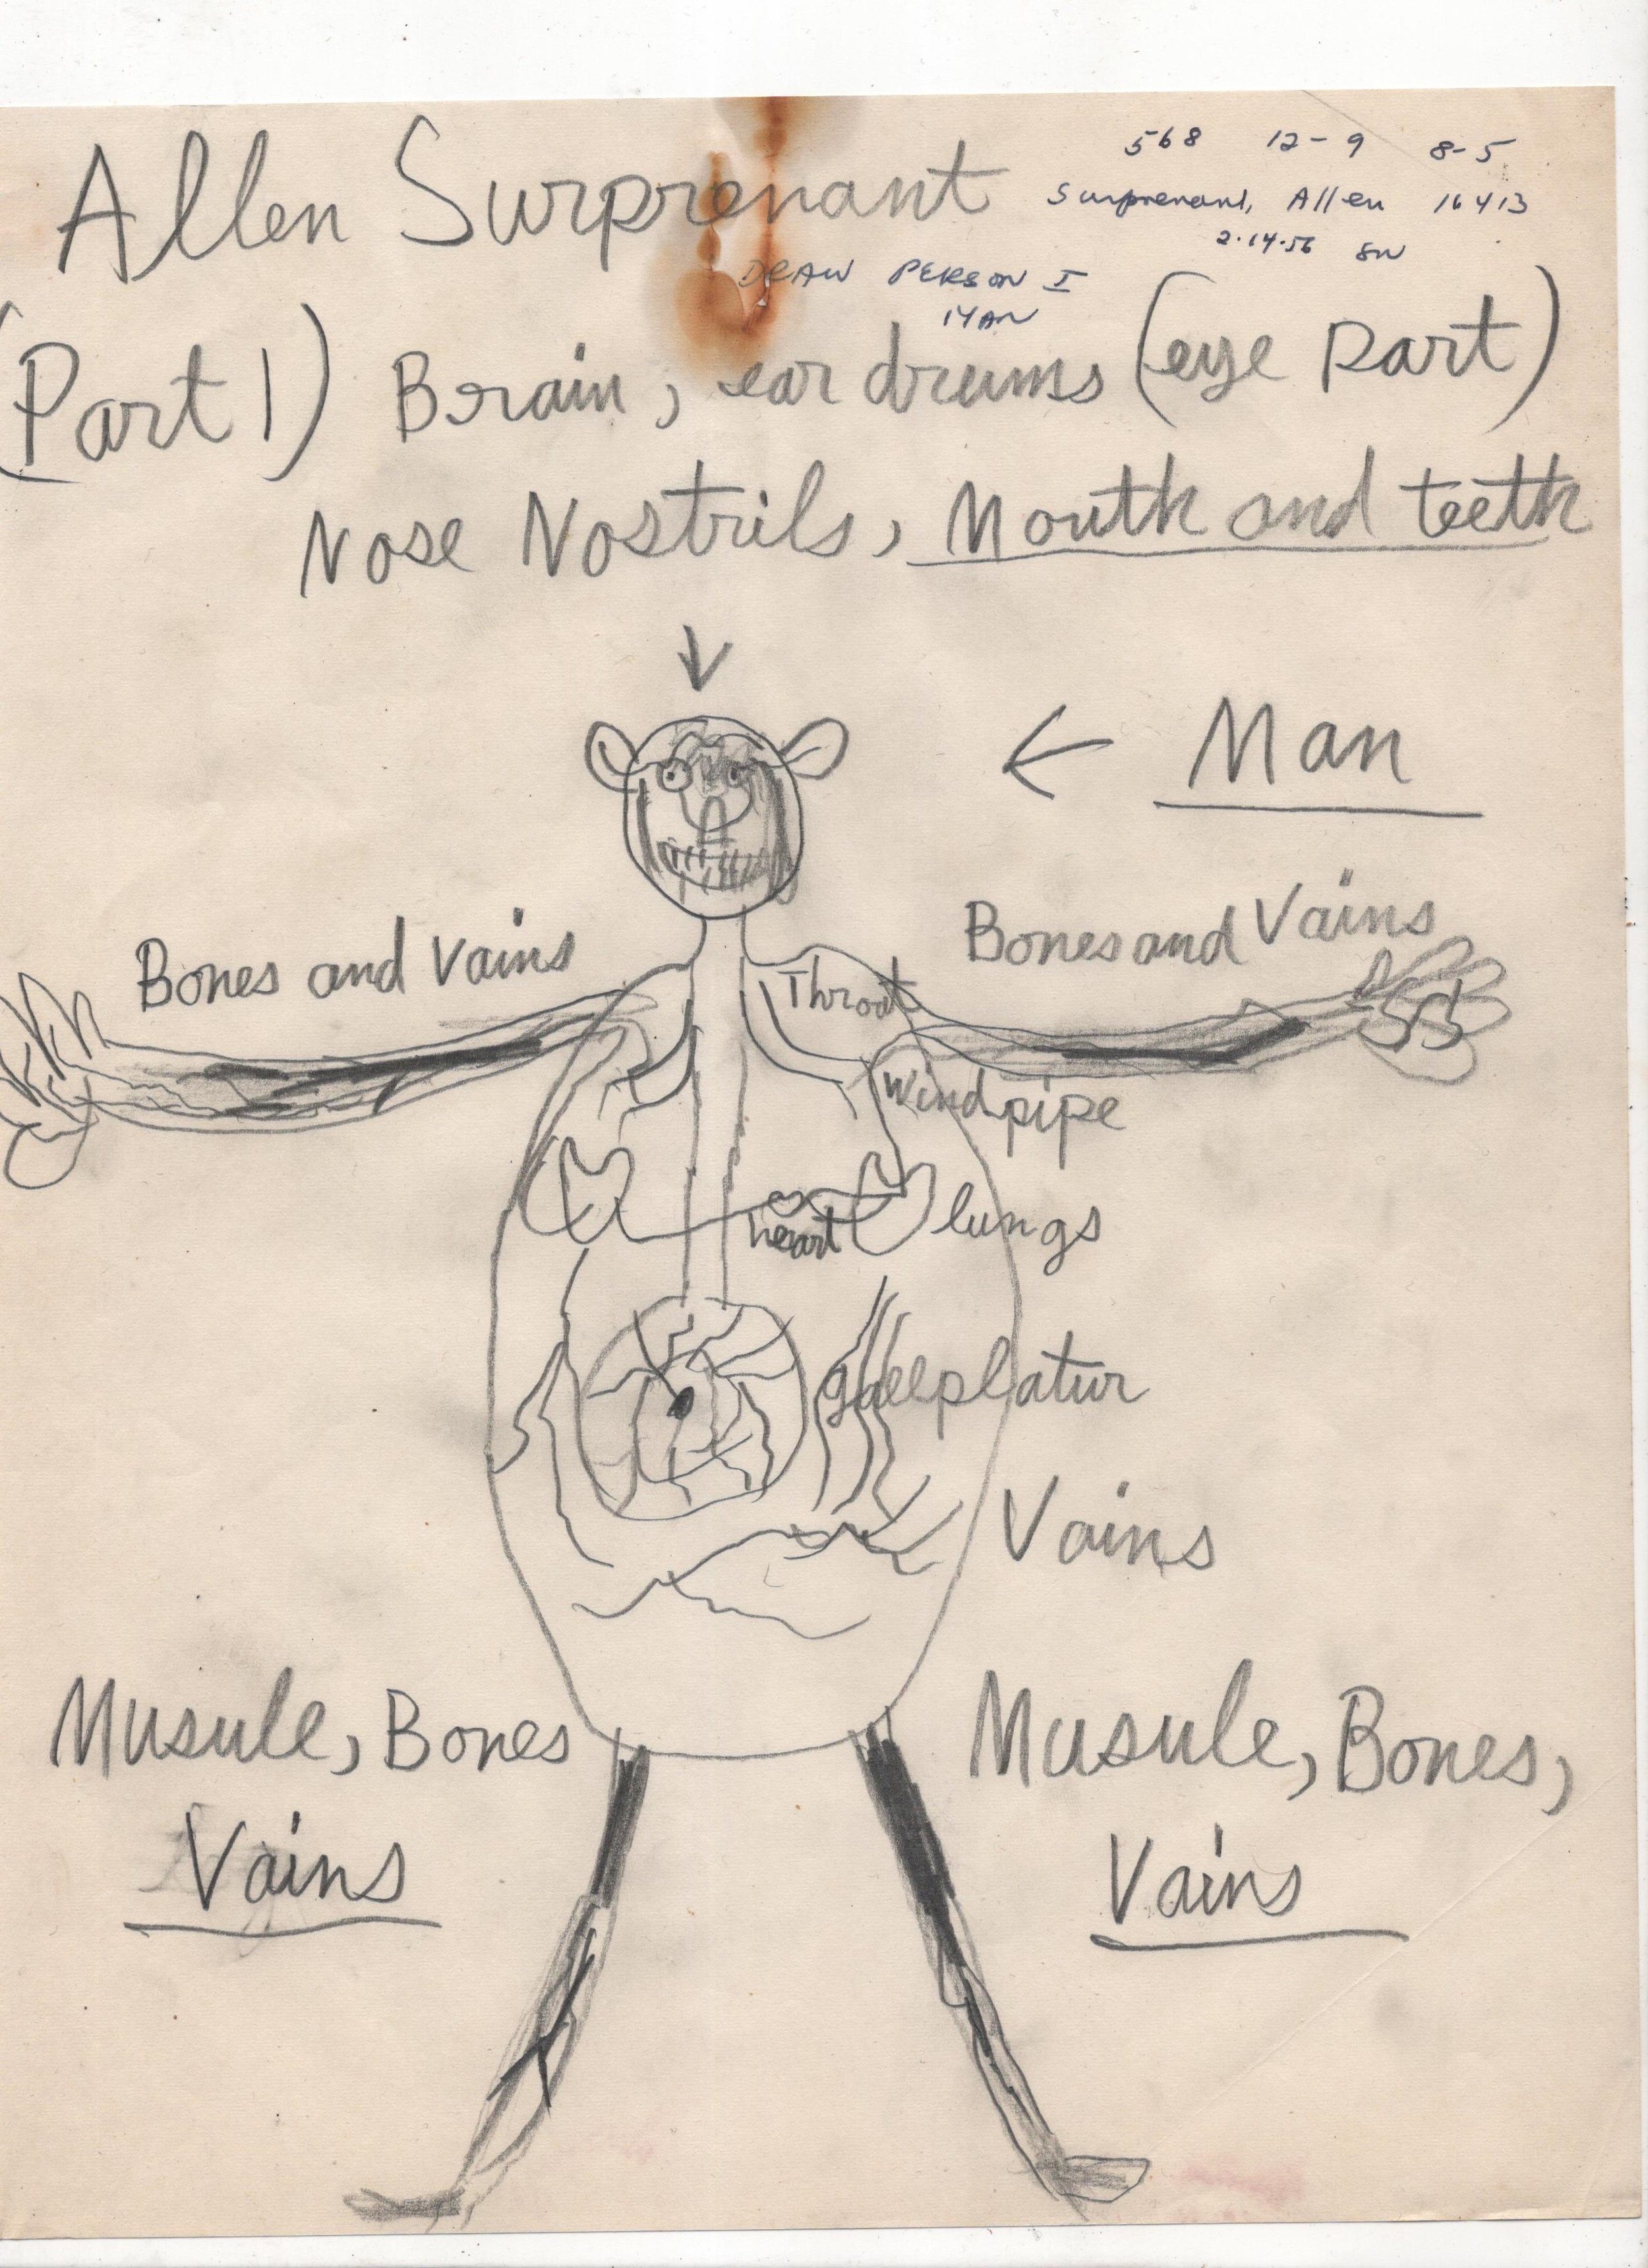 568 12-9 8-5
Allen Surprenant
Surprenant, Allen 16413
2.14.56 SW
DRAW PERSON I
MAN
(Part 1) Brain, ear drums (eye part)
Nose Nostrils, Mouth and teeth
Man
Bones and Vains
Bones and Vains
Throat
Windpipe
heart
lungs
gallplatur
Vains
Musule, Bones
Vains
Musule, Bones,
Vains